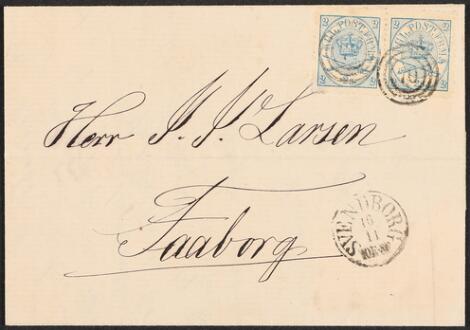 2 KGL.POST.FRM. 2
2 2
2 KGL.POST.FRM. 2
70
2 2
Herr J. J. Larsen
Faaborg
SVENDBORG
16
11